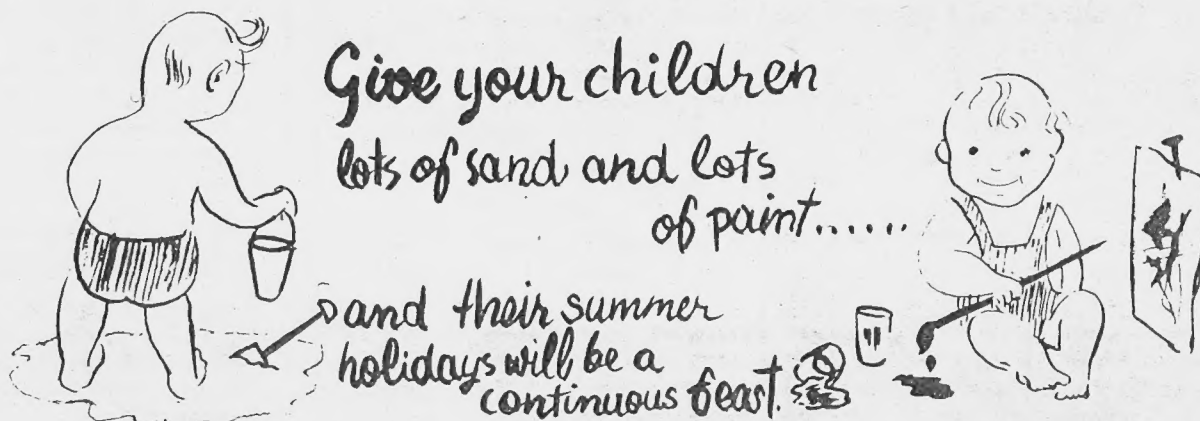 Give your children
lots of sand and lots
of paint......
and their summer
holidays will be a
continuous feast.